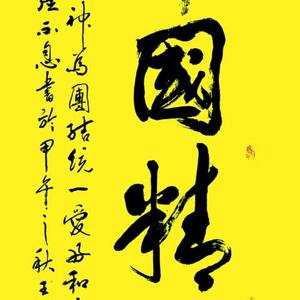 國精
神為團結統一愛好和
不息書於甲午之秋王